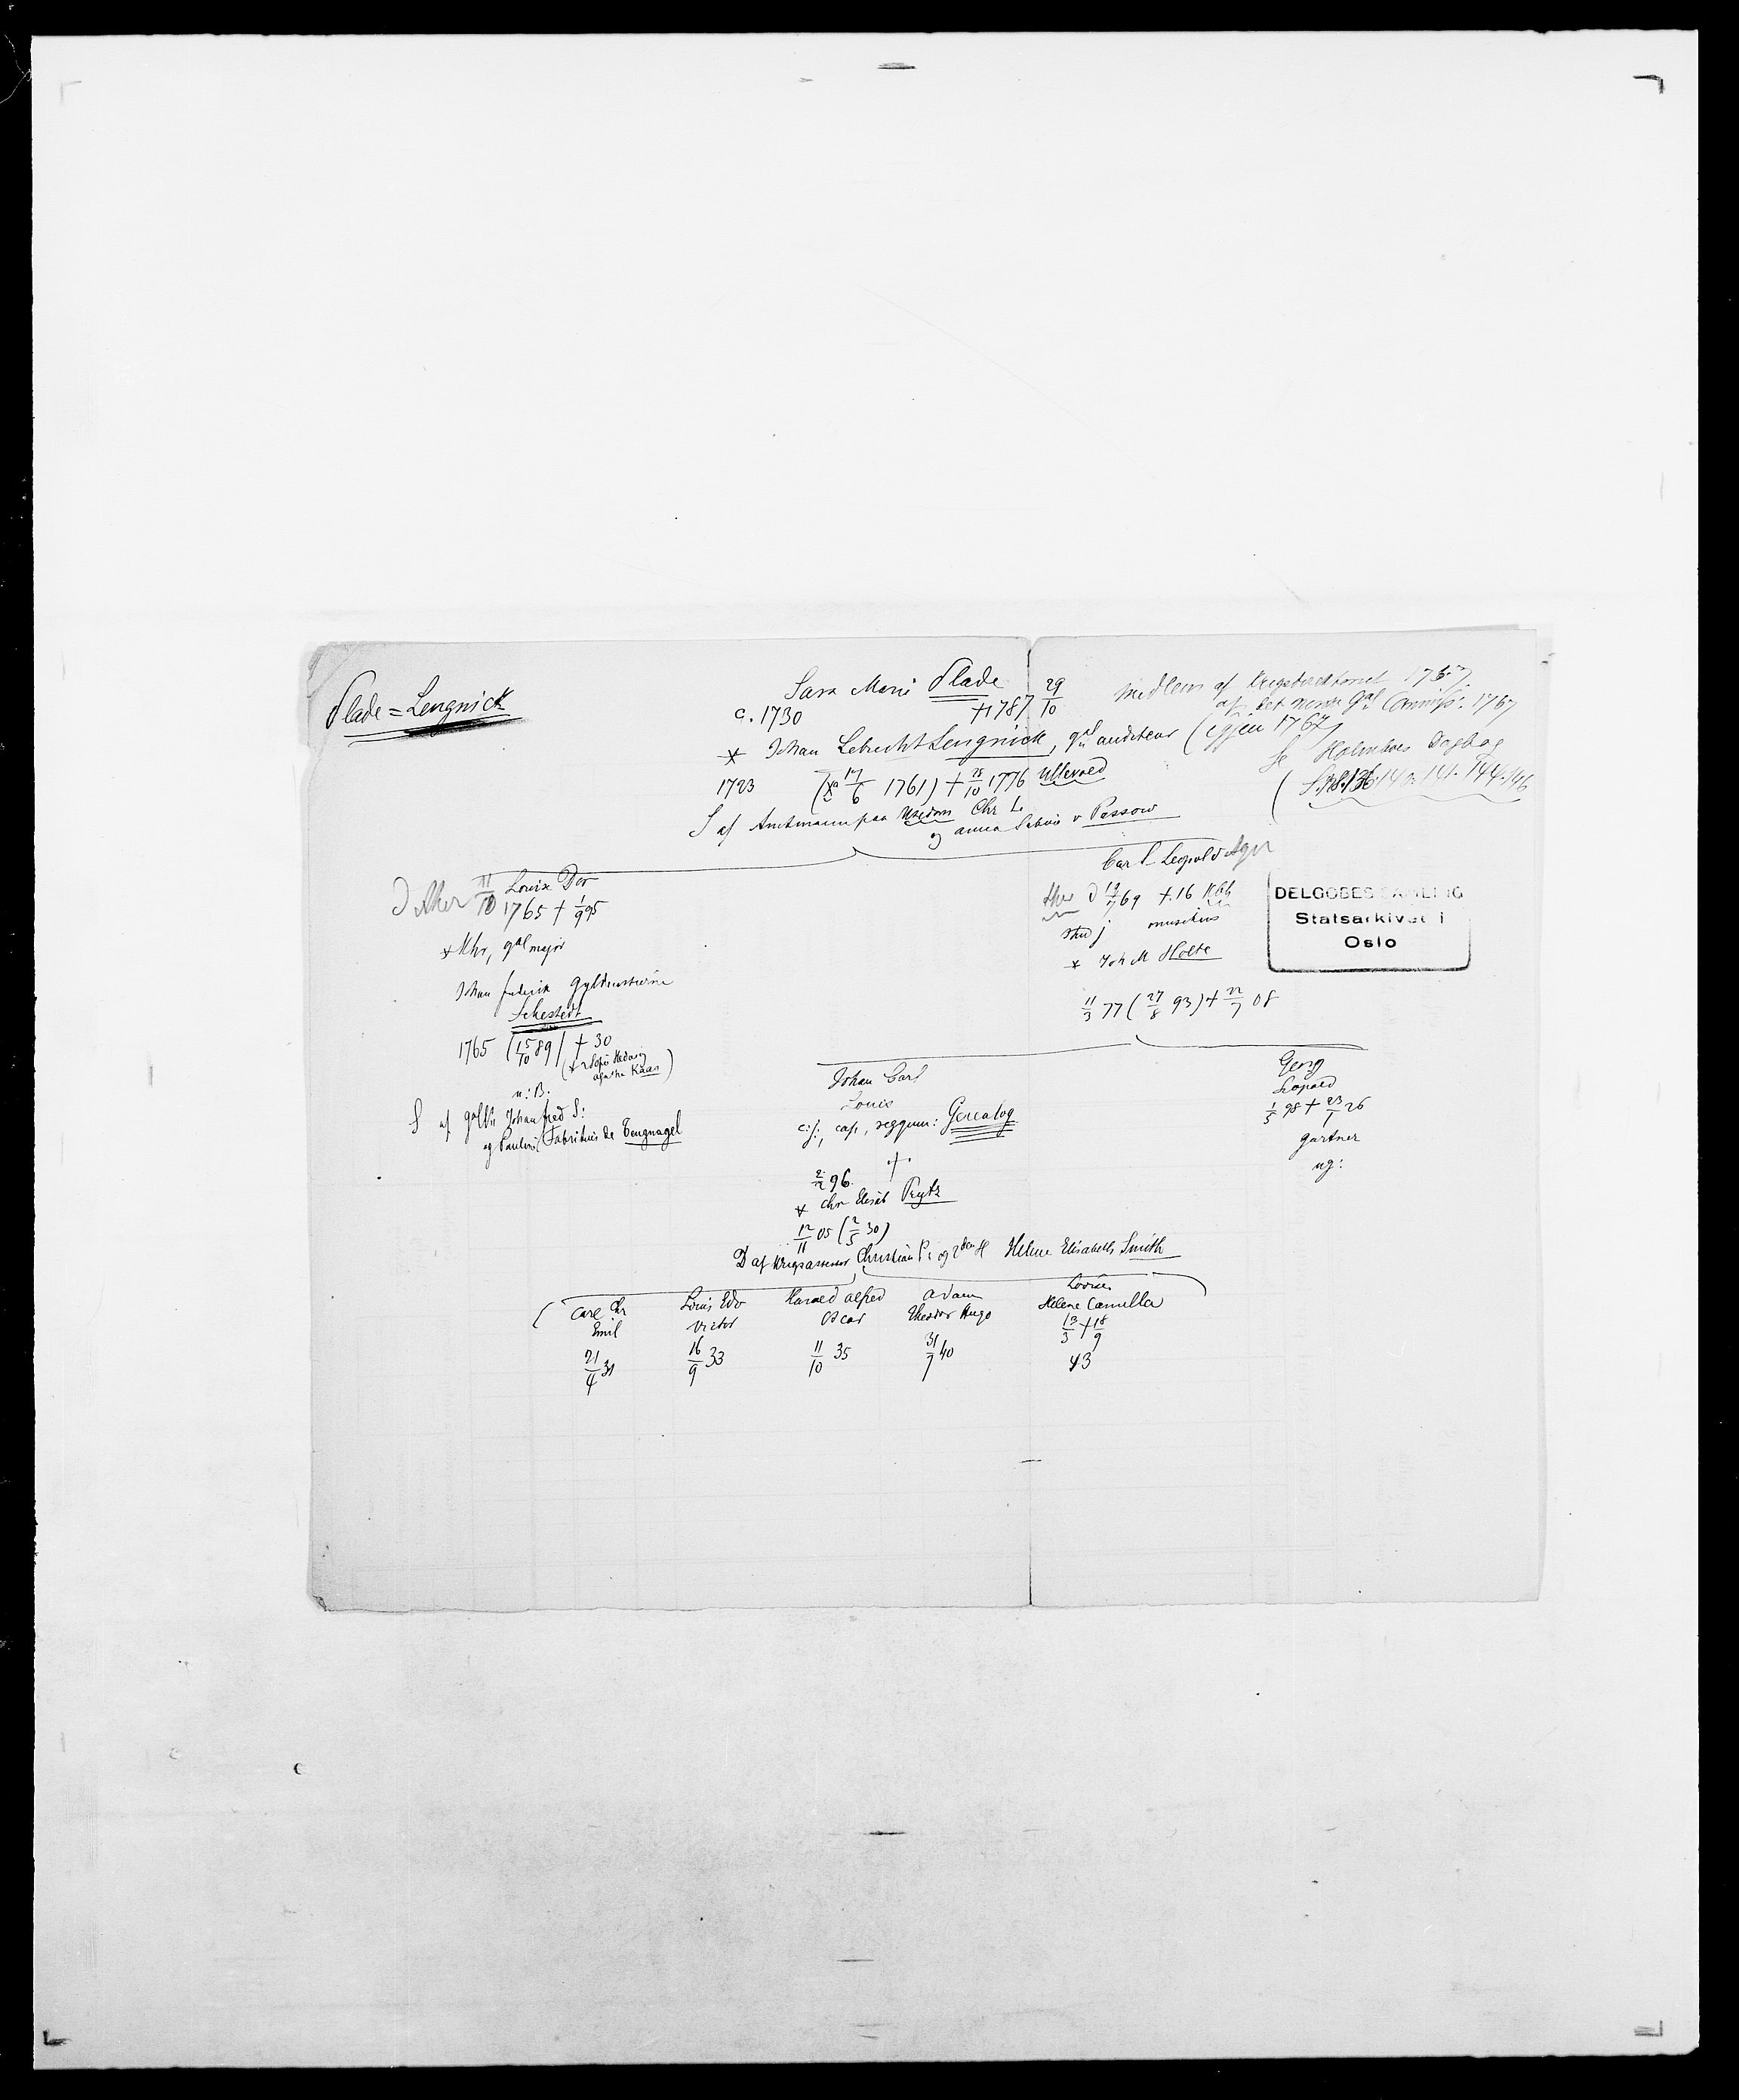 Slade = Lengnick
Sara Marie Slade
c. 1730 † 1787 29/10
* Johan Lebrecht Lengnick, gnl auditeur (igjen 1767)
1723 ( 17/6 1761) † 28/10 1776 Ullevold
S af Amtmann paa Usedom Chr L.
og Anna v Passow
Medlem af 1767
af det norske Gnl Commiss. 1767
se Holmboes Dagbog
141. 144. 146
D Aker 11/10 Louise Dor
1765 † 1/9 95
* Khr, gnl major
Johan Frederik Gyldenstierne
Sehestedt
1765 (15/10 89) † 30
(* 2 Sofie Hedevig
Agathe Kaas)
n: B.
S af Johan Fred S:
og Pauline Fabritius de Tengnagel
Carl Leopold Agr
D 19/7 69 † 16 Kbh
stud j musikus
* Joh M Holte
11/3 77 (27/8 93) † 22/7 08
DELGOBES SAMLING
Statsarkivet i
Oslo
Johan Carl
Louis
c: j:, cap, regqm: Genealog
2/2 96. †
* Chr Elisab Prytz
12/11 05 (2/5 30)
D af Krigsassessor Christian P: og 2den H Helene Elisabeth Smith
Georg
Leopold
1/5 98 † 23/1 26
gartner
ug:
Carl Chr
Emil
21/4 31
Louis Edv
Victor
16/9 33
Harald Alfred
Oscar
11/10 35
Adam
Theodor Hugo
31/7 40
Louise
Helene Camilla
13/3 † 18/9
43